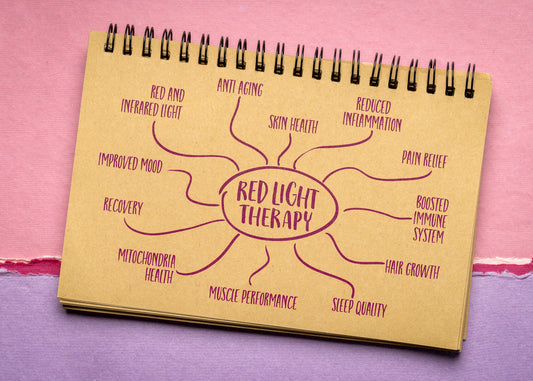 RED AND
INFRARED LIGHT
ANTI AGING
SKIN HEALTH
REDUCED
INFLAMMATION
PAIN RELIEF
IMPROVED MOOD
RED LIGHT
THERAPY
BOOSTED
IMMUNE
SYSTEM
RECOVERY
HAIR GROWTH
MITOCHONDRIA
HEALTH
MUSCLE PERFORMANCE
SLEEP QUALITY